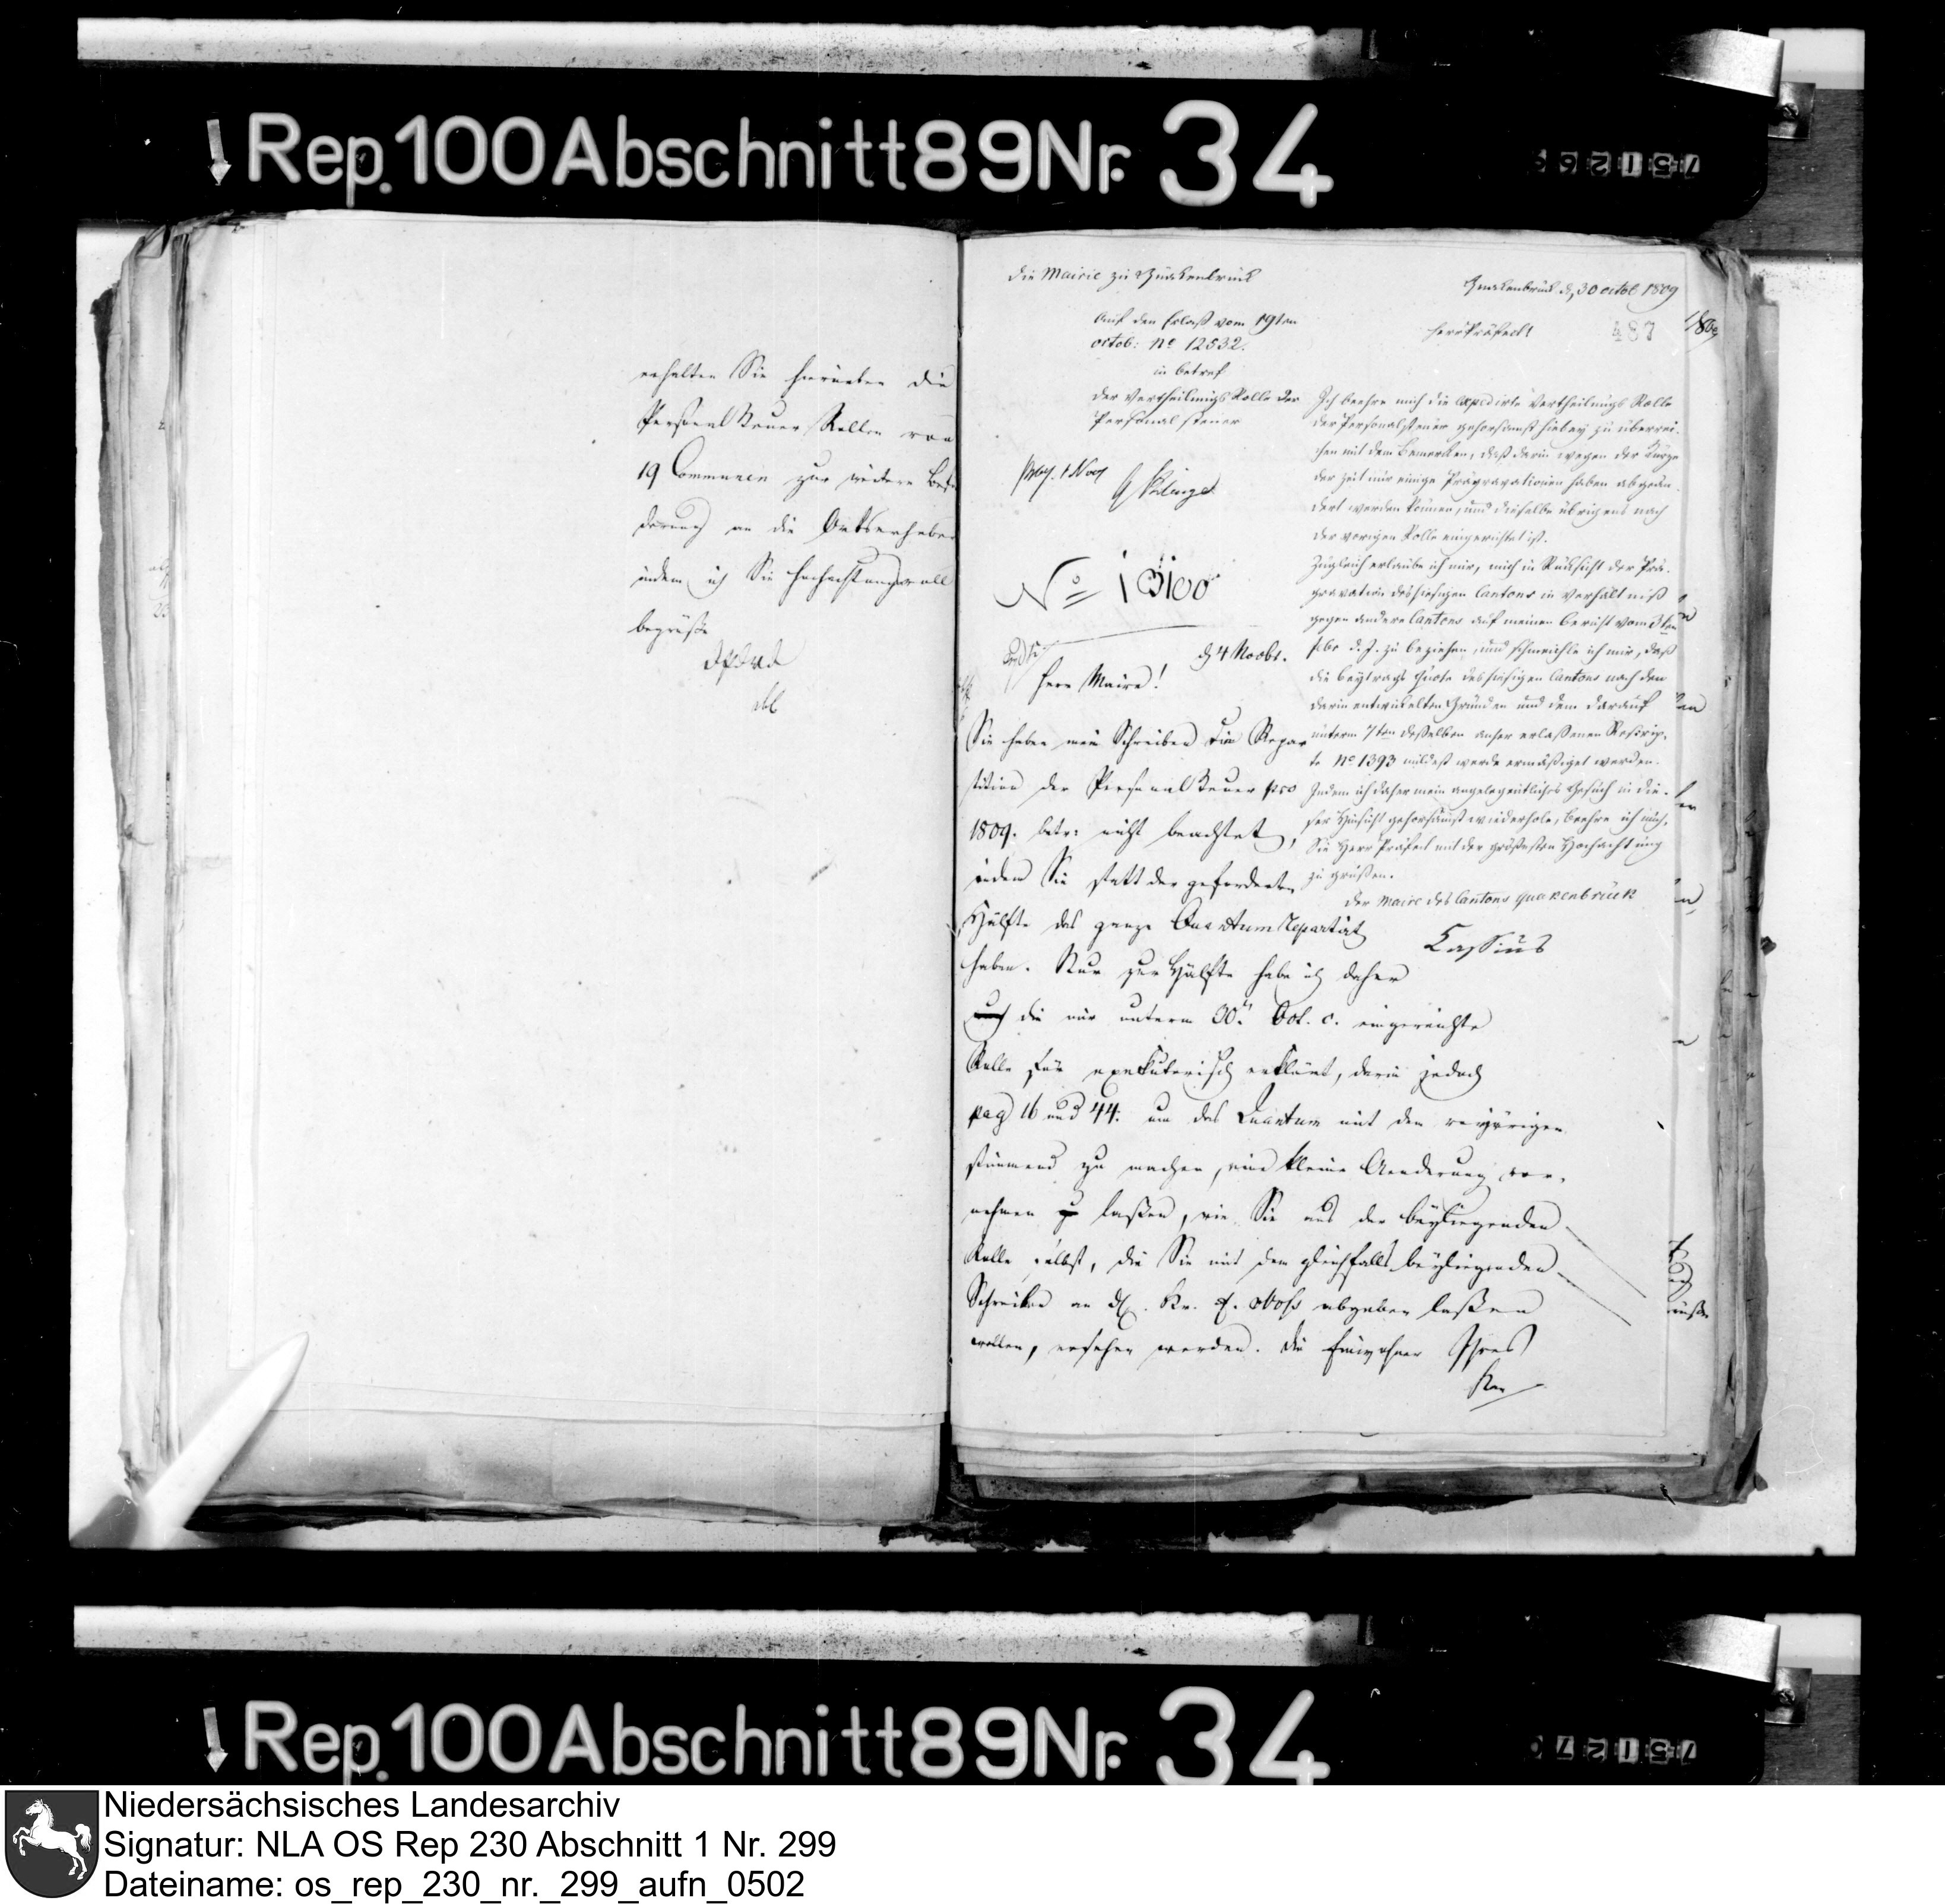 Rep. 100 Abschnitt 89 Nr. 34
erhalten Sie hierneben die
Personal Steuer Rollen von
19 Communen zur weitern Beför
derung an die Ortserheber
indem ich Sie hochachtungsvoll
begrüße
die Mairie zu Quakenbrück
Auf den Erlaß vom 19ten
octob: No 12532.
in betref
der Vertheilungs Rolle der
Personal steuer
No 13100
d 4 Novbr.
Herr Maire!
Sie haben mein Schreiben die Repar
tition der Personal Steuer pro
1809. betr: nicht beachtet,
indem Sie statt der geforderten
Hälfte das ganze Quantum repartirt
haben. Nur zur Hälfte habe ich daher
die mir unterm 30t Oct. c. eingereichte
Rolle für exekutorisch erklärt, darin jedoch
pag 16 und 44. um das Quantum mit dem vorjährigen
stimmend zu machen, eine kleine Aenderung vor-
nehmen laßen, wie Sie aus der beyliegenden
Rolle selbst, die Sie mit dem gleichfalls beyliegenden
Schreiben an abgeben laßen
wollen, ersehen werden. Die Einwohner Ihres
Quakenbrück d 30 octob 1809
Herr Präfect!
487
Ich beehre mich die expedirte Vertheilungs Rolle
der Personalsteuer gehorsamst hiebey zu überrei-
chen mit dem Bemerken, daß darin wegen der Kürze
der Zeit nur einige Prägravationen haben abgeän-
dert werden können, und dieselbe übrigens nach
der vorigen Rolle eingerichtet ist.
Zugleich erlaube ich mir, mich in Rücksicht der Prä-
gravation des hiesigen Cantons in Verhältniß
gegen andere Cantons auf meinen Bericht vom 3ten
d. J. zu beziehen, und schmeichle ich mir, daß
die Beytrags Quote des hiesigen Cantons nach den
darin entwickelten Gründen und dem darauf
unterm 7ten desselben anher erlaßenen Rescrip-
te No 1393 mildest werde ermäßiget werden.
Indem ich daher mein angelegentliches Gesuch in die-
ser Hinsicht gehorsamst wiederhole, beehre ich mich,
Sie Herr Präfect mit der größesten Hochachtung
zu grüßen.
der Maire des Cantons Quakenbrück
Cassius
Rep. 100 Abschnitt 89 Nr. 34
Niedersächsisches Landesarchiv
Signatur: NLA OS Rep 230 Abschnitt 1 Nr. 299
Dateiname: os_rep_230_nr._299_aufn_0502